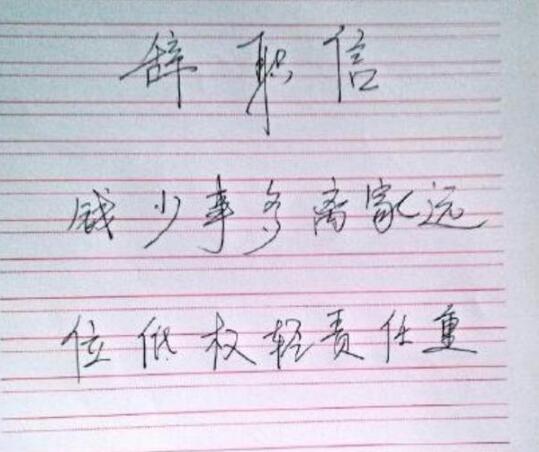 辞职信
钱少事多离家远
位低权轻责任重